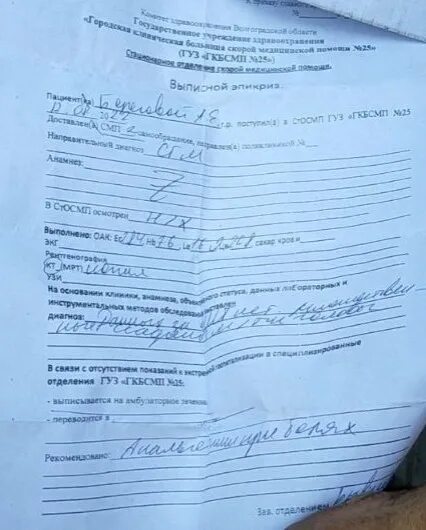 Комитет здравоохранения Волгоградской области
Государственное учреждение здравоохранения
«Городская клиническая больница скорой медицинской помощи №25»
(ГУЗ «ГКБСМП №25»)
Стационарное отделения скорой медицинской помощи.
Выписной эпикриз.
Пациент(ка) Береговой А.Е.
г.р. поступил(а) в СтОСМП ГУЗ «ГКБСМП №25
Доставлен(а) СМП, самообращение, направлен(а) поликлиникой №
Направительный диагноз СГМ
Анамнез:
В СтОСМП осмотрен НХ
Выполнено: ОАК: сахар крови
ЭКГ
Рентгенография
КТ (МРТ) копия
УЗИ
На основании клиники, анамнеза, объективного статуса, данных лабораторных и
инструментальных методов обследования выставлен
диагноз: данных за нет. Множествен
ные ссадины головы
В связи с отсутствием показаний к экстренной госпитализации в специализированные
отделения ГУЗ «ГКБСМП №25:
- выписывается на амбулаторное лечение
- переводится в
Рекомендовано: Анальгетики при болях
Зав. отделением